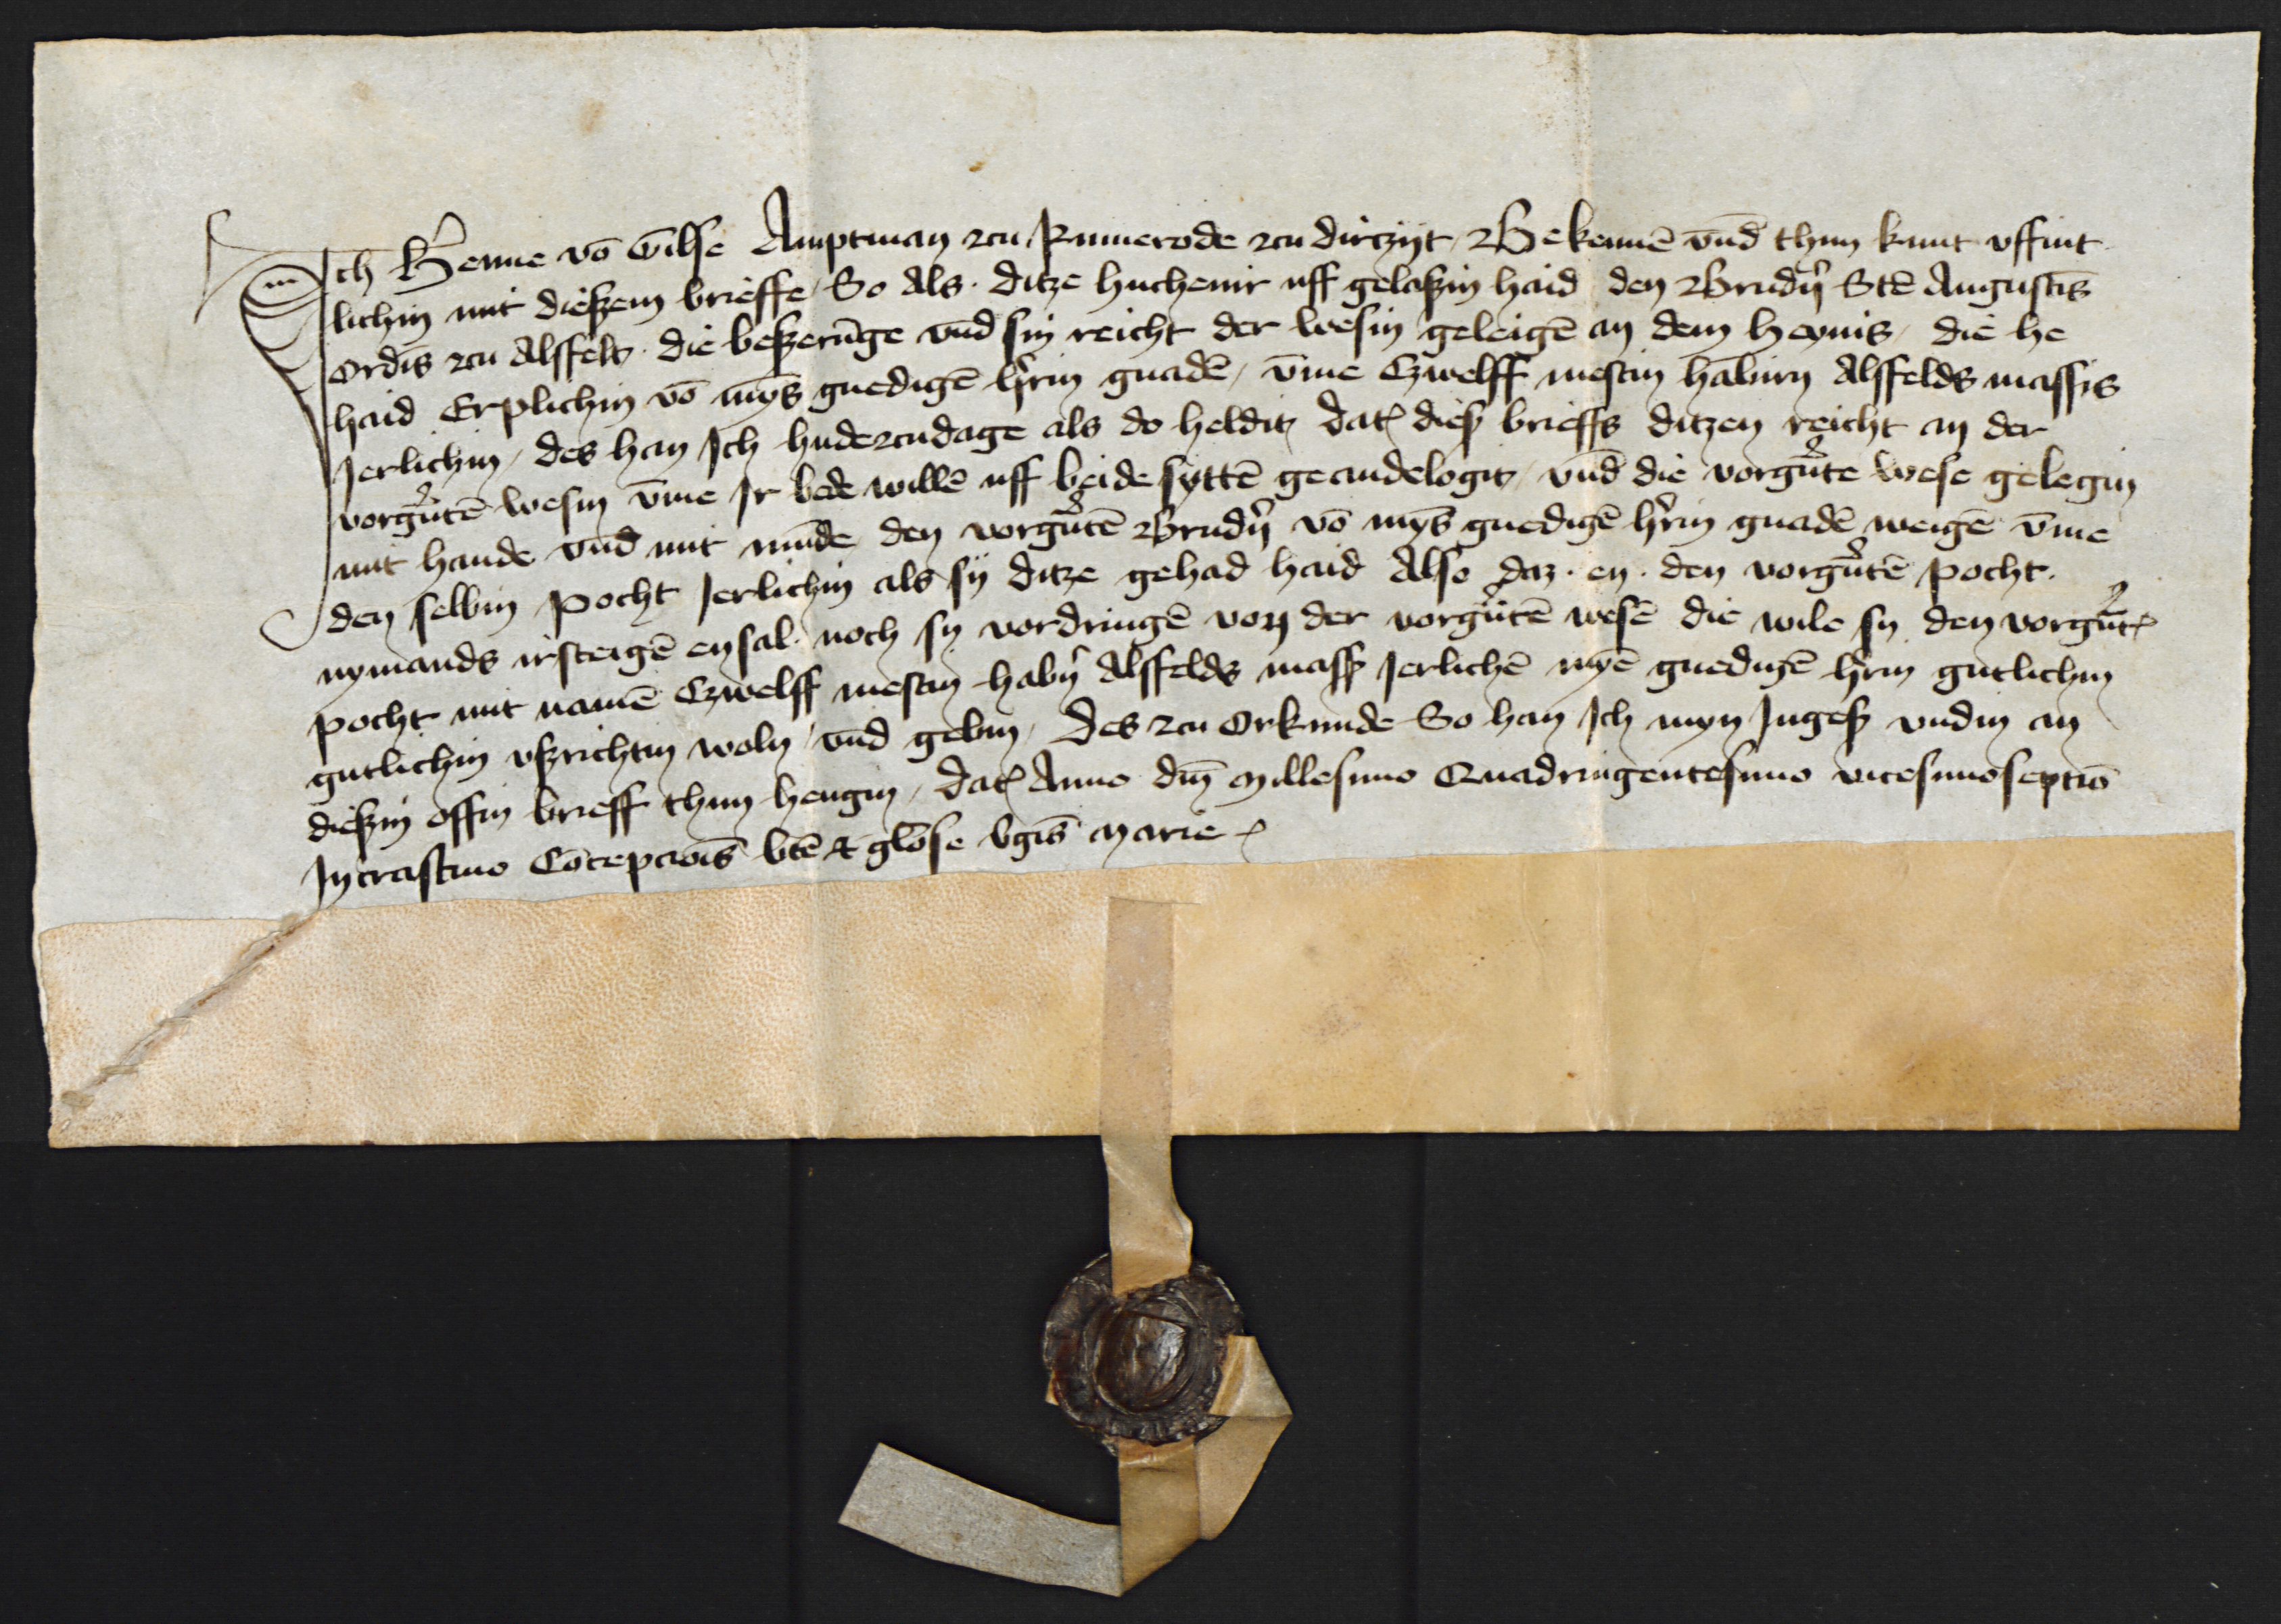 Ich Henne vō Gilse Amptman zcu Rumerode zcu dirczijt Bekennē vnd̄ thun kunt vffint
lichin mit dießem brieffe So Als ditze huchenir uff gelaßin haid den Brudrn Stē Augustīs
Ordīs zcu Alsfelt die beßerūnge vnd̄ sin reicht der wesin geleigē an dem heynis die he
haid Erplichin vō mȳs gnedigē hrin gnadē v̄me Czwelff mestin habirn Alsfelds massis
Jerlichin des han Ich hudezcudage als do heldit dat dieß brieffs ditzen reicht an der
vorgn̄tē wesin v̄me Ir bede willē uff beide syttē geandelogit vnd̄ die vorgn̄te wese gelegin
mit hande vnd̄ mit mūde den vorgn̄tē Brudrn vō mȳs gnedigē hrin gnadē weigē v̄me
den selbin pocht Jerlichin als sij ditze gehad haid Also daz en den vorgn̄tē pocht
nymands irsteigē ensal noch sy vordringē von der vorgn̄tē wesē die wile sy den vorgn̄t
pocht mit namē Czwelff mestin habrn Alsfelds mass Jerlichē mȳē gnedigē hrin gutlichin
gutlichin vßrichtin woln vnd̄ gebin Des zcu Orkunde So han Ich myn Ingeß vndin an
dießin offin brieff thun hengin Dat Anno dn̄i Millesimo Quadringentesimo vicesimoseptīo
In crastino Cōcepcioīs btē & glōse vgīs Marie